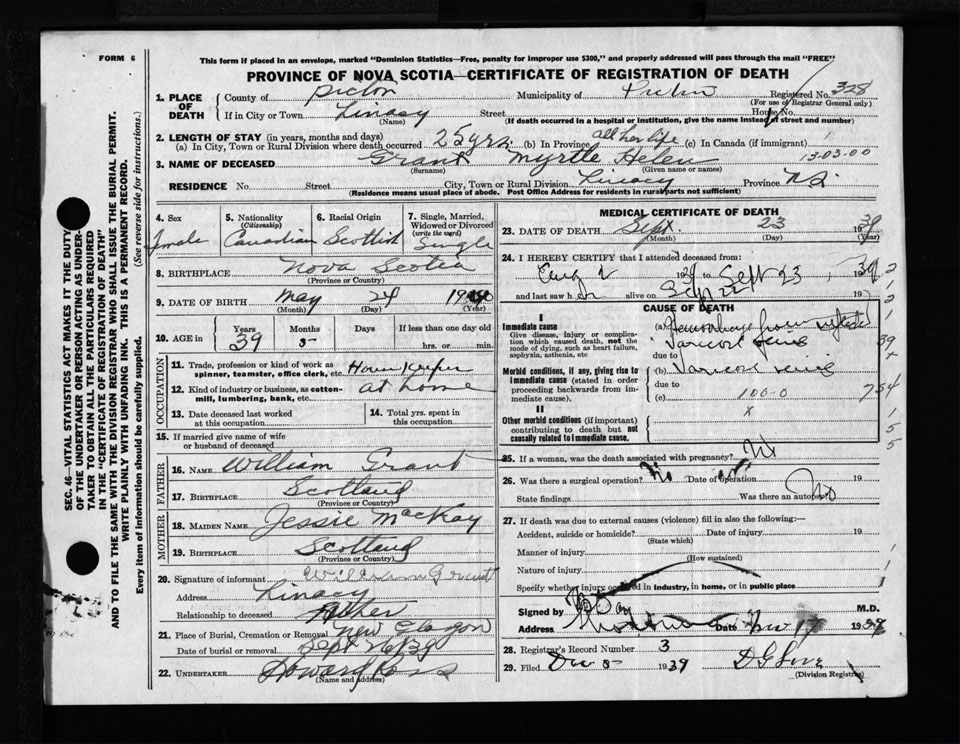 FORM 6
This form if placed in an envelope, marked "Dominion Statistics—Free, penalty for improper use $300," and properly addressed will pass through the mail "FREE"
PROVINCE OF NOVA SCOTIA—CERTIFICATE OF REGISTRATION OF DEATH
1. PLACE OF DEATH
County of Pictou Municipality of Pictou Registered No. 328
(For use of Registrar General only)
If in City or Town Street House No.
(Name) (If death occurred in a hospital or institution, give the name instead of street and number)
2. LENGTH OF STAY (in years, months and days)
(a) In City, Town or Rural Division where death occurred 25 yrs. (b) In Province all her life (c) In Canada (if immigrant)
13.03.00
3. NAME OF DECEASED Grant Myrtle Helen
(Surname) (Given name or names)
RESIDENCE No. Street City, Town or Rural Division Linacy Province N.S.
(Residence means usual place of abode. Post Office Address for residents in rural parts not sufficient)
4. Sex female
5. Nationality (Citizenship) Canadian
6. Racial Origin Scottish
7. Single, Married, Widowed or Divorced (write the word) Single
8. BIRTHPLACE Nova Scotia
(Province or Country)
9. DATE OF BIRTH May 24 19
(Month) (Day) (Year)
10. AGE in Years 39 Months 5 Days If less than one day old hrs. or min.
OCCUPATION
11. Trade, profession or kind of work as spinner, teamster, office clerk, etc. House Keeper
12. Kind of industry or business, as cotton-mill, lumbering, bank, etc. at home
13. Date deceased last worked at this occupation
14. Total yrs. spent in this occupation
15. If married give name of wife or husband of deceased
FATHER
16. NAME William Grant
17. BIRTHPLACE Scotland
(Province or Country)
MOTHER
18. MAIDEN NAME Jessie MacKay
19. BIRTHPLACE Scotland
(Province or Country)
20. Signature of informant William Grant
Address Linacy
Relationship to deceased Father
21. Place of Burial, Cremation or Removal New Glasgow
Date of burial or removal Sept 26/39
22. UNDERTAKER Howard Ross
(Name and address)
MEDICAL CERTIFICATE OF DEATH
23. DATE OF DEATH Sept. 23 1939
(Month) (Day) (Year)
24. I HEREBY CERTIFY that I attended deceased from:
Aug 2 1939 to Sept 23, 1939
and last saw her alive on Sept 22 19
CAUSE OF DEATH
I
Immediate cause
Give disease, injury or complication which caused death, not the mode of dying, such as heart failure, asphyxia, asthenia, etc
(a) Hemorrhage from
Varicose Veins
due to
Morbid conditions, if any, giving rise to immediate cause (stated in order proceeding backwards from immediate cause).
(b) Varicose veins
due to
(c) 100-0
II
Other morbid conditions (if important) contributing to death but not causally related to immediate cause.
x
25. If a woman, was the death associated with pregnancy? No
26. Was there a surgical operation? No Date of operation 19
State findings Was there an autopsy? No
27. If death was due to external causes (violence) fill in also the following:—
Accident, suicide or homicide? Date of injury 19
(State which)
Manner of injury
(How sustained)
Nature of injury
Specify whether injury occurred in industry, in home, or in public place
Signed by M.D.
Address Date Nov 17 1939
28. Registrar's Record Number 3
29. Filed Dec 5 1939
(Division Registrar)
SEC. 46—VITAL STATISTICS ACT MAKES IT THE DUTY OF THE UNDERTAKER OR PERSON ACTING AS UNDERTAKER TO OBTAIN ALL THE PARTICULARS REQUIRED IN THE "CERTIFICATE OF REGISTRATION OF DEATH" AND TO FILE THE SAME WITH THE DIVISION REGISTRAR WHO SHALL ISSUE THE BURIAL PERMIT.
WRITE PLAINLY WITH UNFADING INK. THIS IS A PERMANENT RECORD.
Every item of information should be carefully supplied. (See reverse side for instructions.)